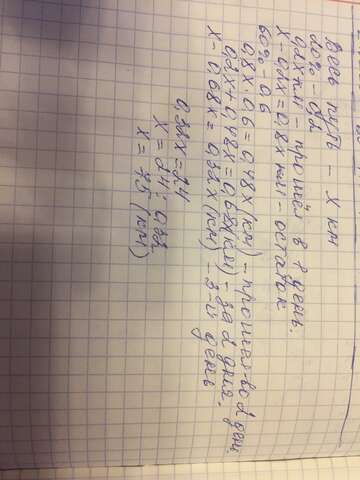 Весь путь - х км
20% - 0,2
0,2х км - прошёл в 1 день.
х - 0,2х = 0,8х км - остаток
60% - 0,6
0,8х · 0,6 = 0,48х (км) - прошел во 2 день.
0,2х + 0,48х = 0,68х (км) - за 2 дня.
х - 0,68х = 0,32х (км) - 3-й день
0,32х = 24
х = 24 : 0,32
х = 75 (км)